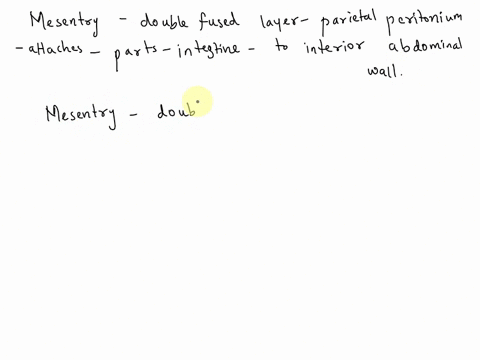 Mesentry - double fused layer - parietal peritonium
- attaches - parts - integtine - to interior abdominal
wall.
Mesentry - doub